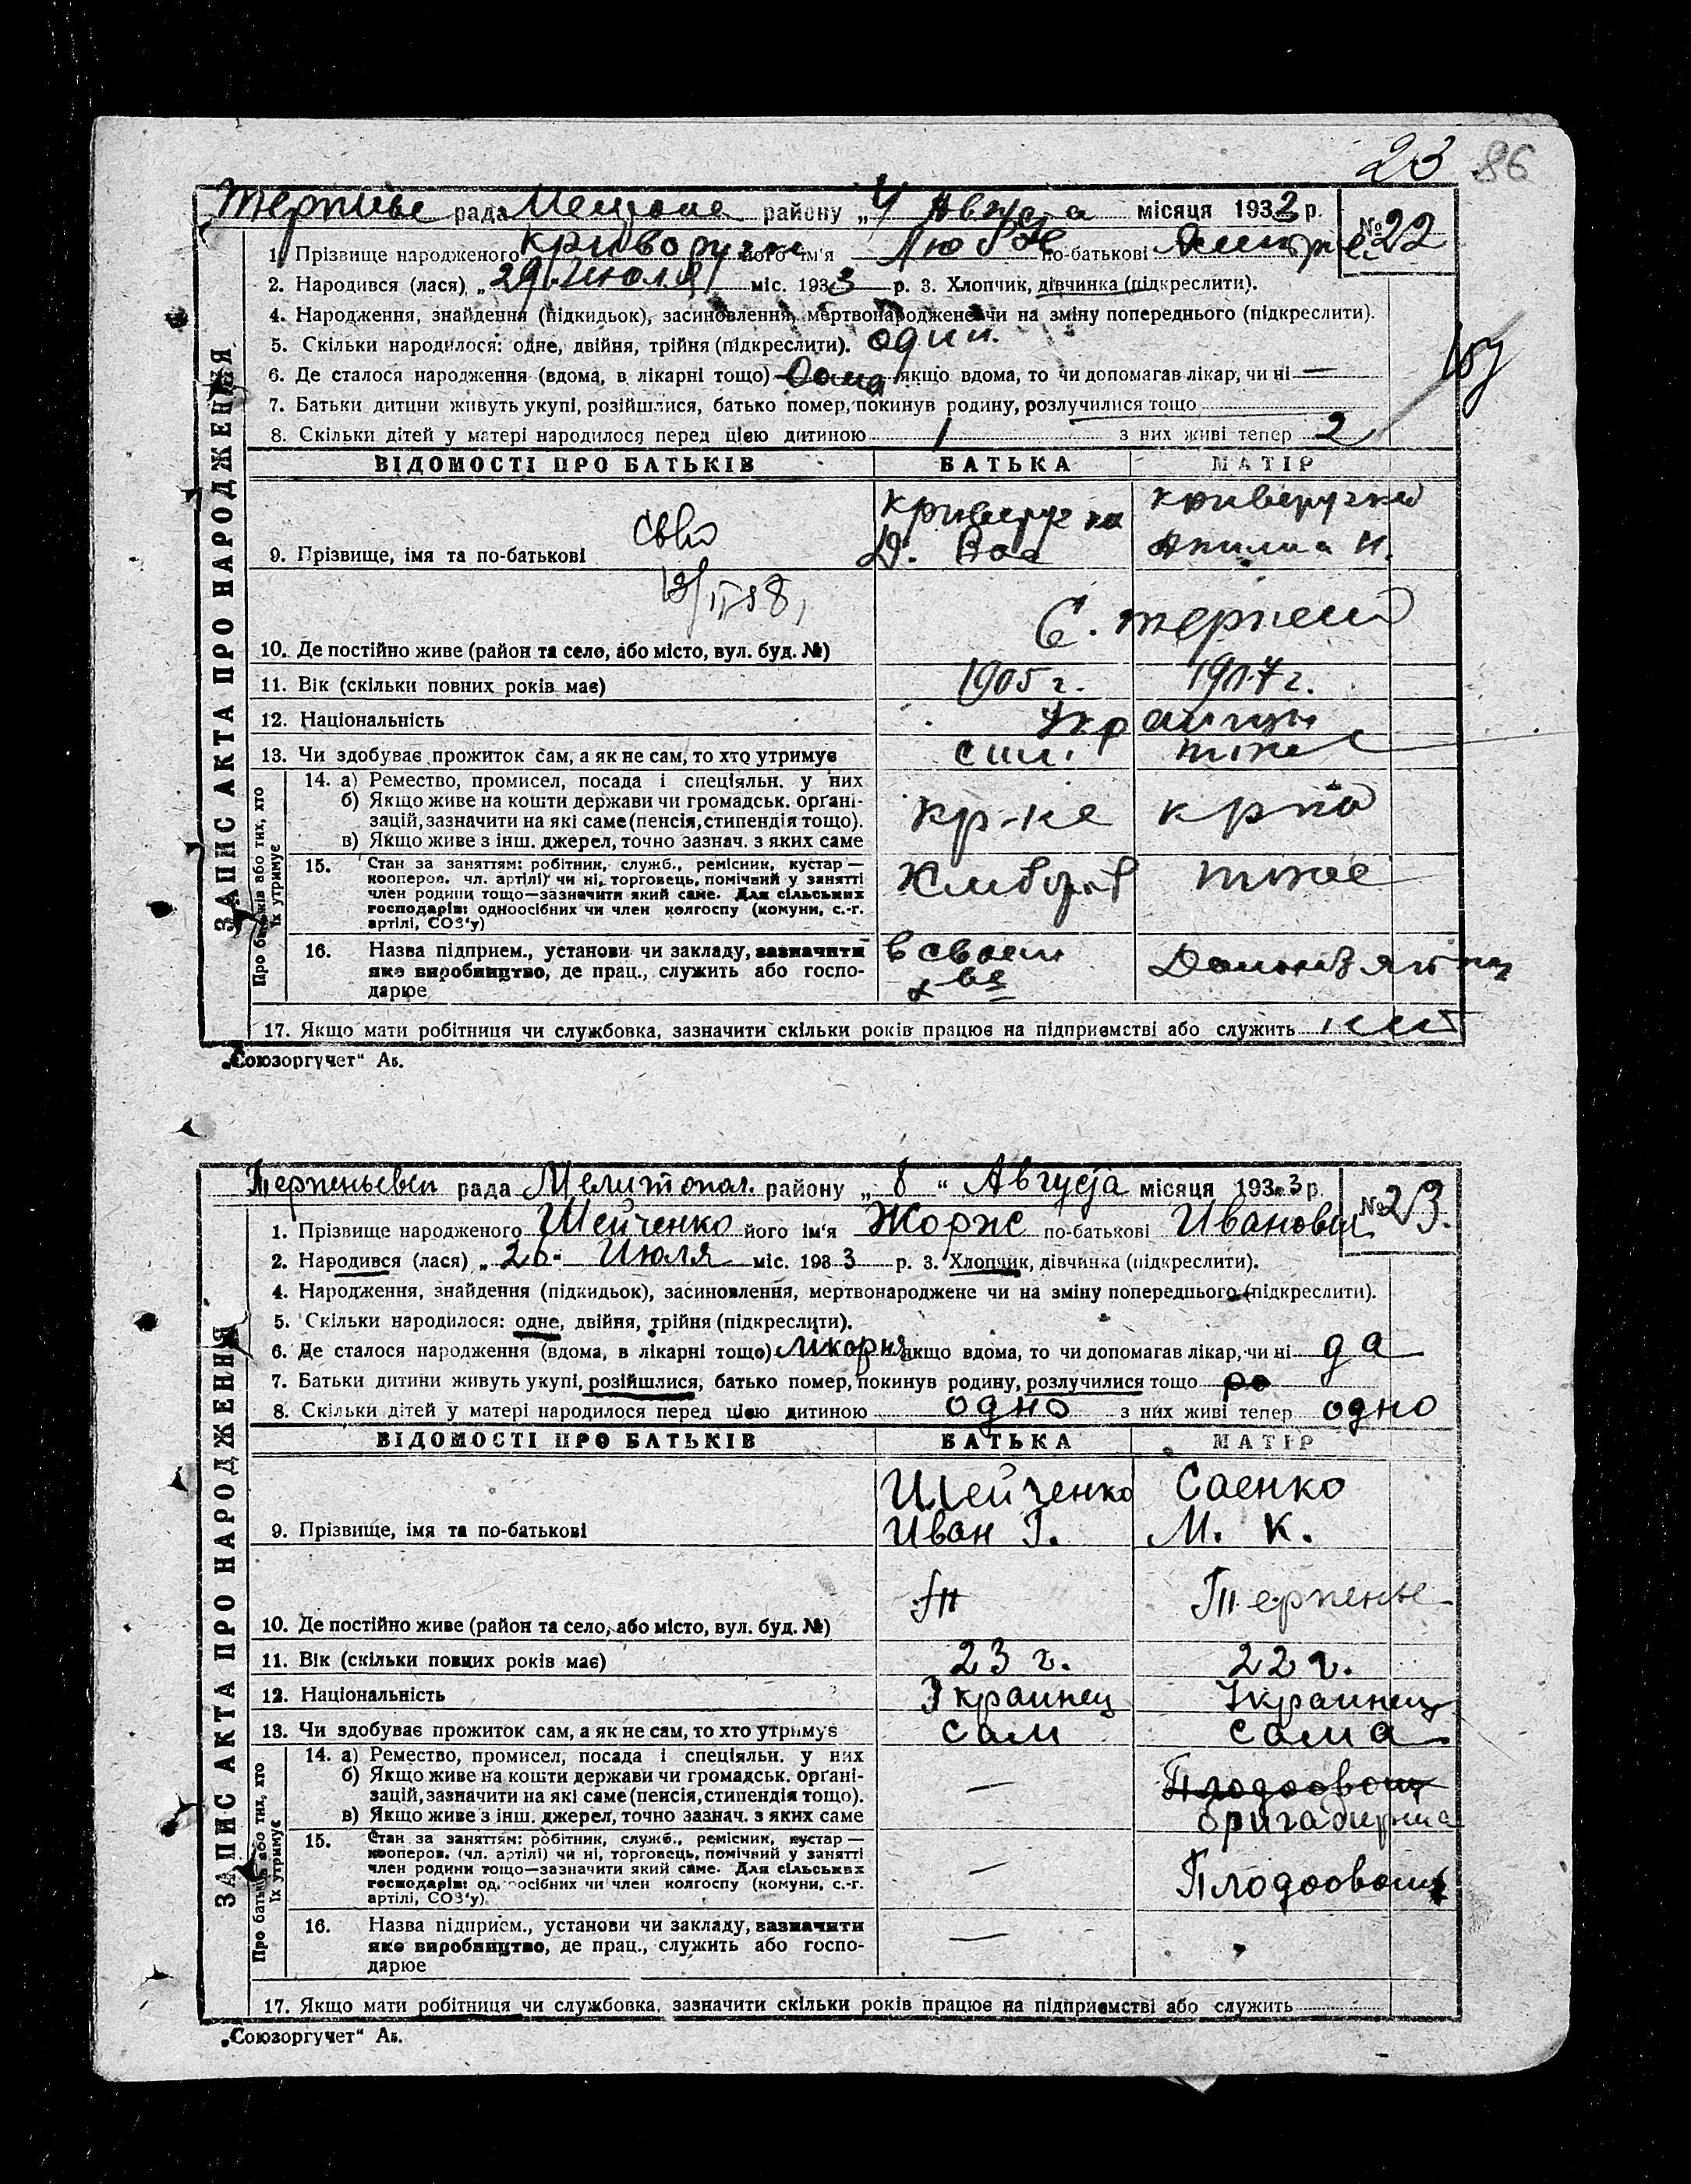 23 86
рада району „4 Августа місяця 1933 р. № 22
1. Прізвище народженого Криворучко його ім'я Любов по-батькові
2. Народився (лася) „29 июля міс. 1933 р. 3. Хлопчик, дівчинка (підкреслити).
4. Народження, знайдення (підкидьок), засиновлення, мертвонароджене чи на зміну попереднього (підкреслити).
5. Скільки народилося: одне, двійня, трійня (підкреслити). один.
6. Де сталося народження (вдома, в лікарні тощо) Дома якщо вдома, то чи допомагав лікар, чи ні —
7. Батьки дитини живуть укупі, розійшлися, батько помер, покинув родину, розлучилися тощо
8. Скільки дітей у матері народилося перед цією дитиною 1 з них живі тепер 2
ВІДОМОСТІ ПРО БАТЬКІВ БАТЬКА МАТІР
9. Прізвище, імя та по-батькові
10. Де постійно живе (район та село, або місто, вул. буд. №) С.
11. Вік (скільки повних років має) 1905 г. 1907 г.
12. Національність Украинцы
13. Чи здобуває прожиток сам, а як не сам, то хто утримує сам тоже
ЗАПИС АКТА ПРО НАРОДЖЕННЯ
Про батьків або тих, хто їх утримує
14. а) Ремество, промисел, посада і спеціяльн. у них
б) Якщо живе на кошти держави чи громадськ. органі-
зацій, зазначити на які саме (пенсія, стипендія тощо).
в) Якщо живе з інш. джерел, точно зазнач. з яких саме
15. Стан за заняттям: робітник, служб., ремісник, кустар —
кооперов. чл. артілі) чи ні, торговець, помічний у занятті
член родини тощо—зазначити який саме. Для сільських
господарів: одноосібних чи член колгоспу (комуни, с.-г.
артілі, СОЗ'у) тоже
16. Назва підприєм., установи чи закладу, зазначити
яке виробництво, де прац., служить або госпо-
дарює в своем х-ве
17. Якщо мати робітниця чи службовка, зазначити скільки років працює на підприємстві або служить нет
„Союзоргучет“ Ав.
рада Мелитопол. району „8“ Августа місяця 1933 р. № 23.
1. Прізвище народженого Шейченко його ім'я Жорж по-батькові Иванович
2. Народився (лася) „26 Июля міс. 1933 р. 3. Хлопчик, дівчинка (підкреслити).
4. Народження, знайдення (підкидьок), засиновлення, мертвонароджене чи на зміну попереднього (підкреслити).
5. Скільки народилося: одне, двійня, трійня (підкреслити).
6. Де сталося народження (вдома, в лікарні тощо) лікарня якщо вдома, то чи допомагав лікар, чи ні да
7. Батьки дитини живуть укупі, розійшлися, батько помер, покинув родину, розлучилися тощо
8. Скільки дітей у матері народилося перед цією дитиною одно з них живі тепер одно
ВІДОМОСТІ ПРО БАТЬКІВ БАТЬКА МАТІР
Шейченко Саенко
9. Прізвище, імя та по-батькові Иван Г. М. К.
10. Де постійно живе (район та село, або місто, вул. буд. №) Терпенье
11. Вік (скільки повних років має) 23 г. 22 г.
12. Національність Украинец Украинец
13. Чи здобуває прожиток сам, а як не сам, то хто утримує сам сама
ЗАПИС АКТА ПРО НАРОДЖЕННЯ
Про батьків або тих, хто їх утримує
14. а) Ремество, промисел, посада і спеціяльн. у них
б) Якщо живе на кошти держави чи громадськ. органі-
зацій, зазначити на які саме (пенсія, стипендія тощо). —
в) Якщо живе з інш. джерел, точно зазнач. з яких саме
15. Стан за заняттям: робітник, служб., ремісник, кустар —
кооперов. (чл. артілі) чи ні, торговець, помічний у занятті
член родини тощо—зазначити який саме. Для сільських
господарів: одноосібних чи член колгоспу (комуни, с.-г.
артілі, СОЗ'у). —
16. Назва підприєм., установи чи закладу, зазначити
яке виробництво, де прац., служить або госпо-
дарює —
17. Якщо мати робітниця чи службовка, зазначити скільки років працює на підприємстві або служить
„Союзоргучет“ Ав.